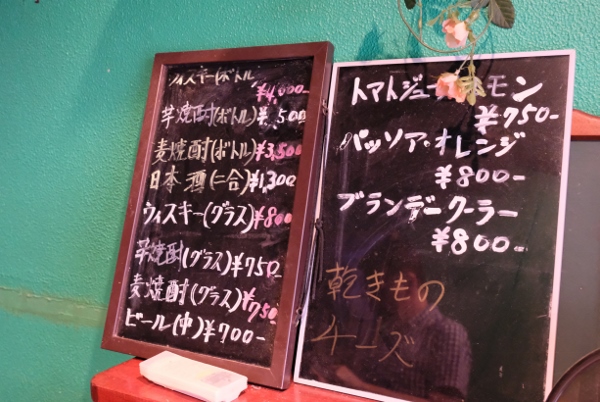 ウィスキー(ボトル
¥4,000-
芋焼酎(ボトル)
麦焼酎(ボトル)¥3,500
日本酒(二合)¥1,300
ウィスキー(グラス)¥800
芋焼酎(グラス)¥750-
麦焼酎(グラス)¥750-
ビール(中)¥700-
トマトジュース
モン
¥750-
パッソア・オレンジ
¥800-
ブランデークーラー
¥800-
乾きもの
チーズ